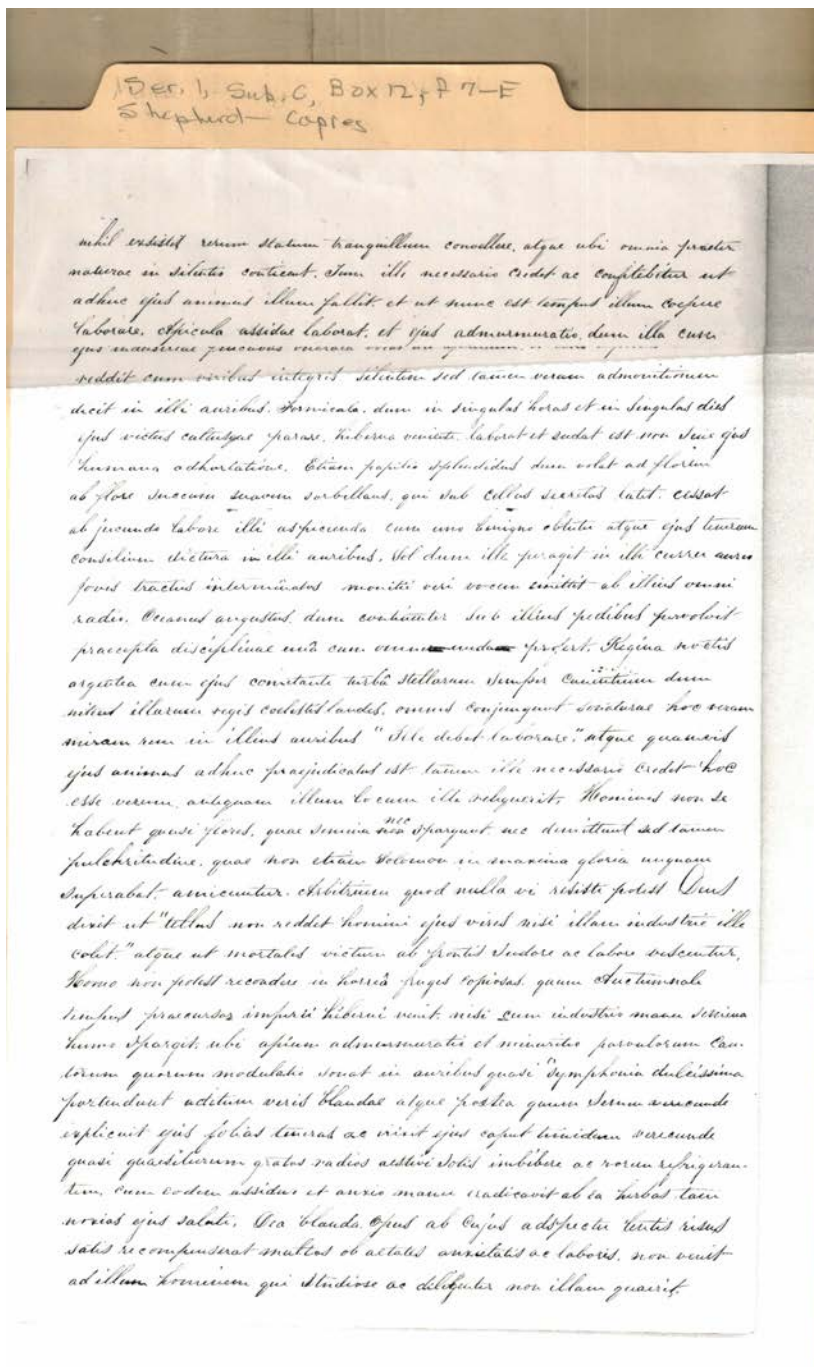 Ser. 1, Sub. C, Box 12, F 7-E
Shepherd - Copies
nihil exsistit rerum statum tranquillum convellere, atque ubi omnia praeter
naturae in silentio conticent. Tum ille necessario credet ac confitebitur ut
adhuc ejus animus illum fallit, et ut nunc est tempus illum coepere
laborare. Apicula assidue laborat, et ejus admurmuratio, dum illa cum
ejus industriae
reddit cum viribus integris silentem sed tamen veram admonitionem
dicit in illi auribus. Formicula, dum in singulas horas et in singulas dies
ejus victus cultusque parare, hiberna veniente laborat et sudat est non sine ejus
humana adhortatione. Etiam papilio splendidus dum volat ad florem
ab flore succum suavem sorbillans, qui sub cellas secretas latit, cessat
ab jucundo labore illi aspicienda cum uno benigno obtutu atque ejus tenerum
consilium dictura in illi auribus. Sol dum ille peragit in illi curru aureo
Joves tractus interminatos monitii veri vocem emittit ab illius omni
radio. Oceanus augustus, dum continenter sub illius pedibus pervolvit
praecepta disciplinae unà cum omni profert. Regina noctis
argentea cum ejus comitante turbâ stellarum semper dum
nitent illarum regis coelestis laudes, omnes conjungunt hoc veram
miram rem in illius auribus "Ille debet laborare." atque quamvis
ejus animus adhuc praejudicatus est tamen ille necessario credet hoc
esse verum, antequam illum locum ille reliquerit. Homines non se
habent quasi flores, quae semina nec spargunt nec demittunt sed tamen
pulchritudine, quae non etiam Solomon in maxima gloria unquam
superabat, amicuntur. Arbitrium quod nulla vi resisti potest Deus
dixit ut "tellus non reddet homini ejus vires nisi illam industrie ille
colet," atque ut mortales victum ab frontis sudore ac labore vescentur.
Homo non potest recondere in horreâ fruges copiosas, quum Auctumnale
tempus praecursor imperii hiberni venit, nisi cum industrio manu semina
humo spargit, ubi apium admurmuratio et minuritio parvulorum can-
torum quorum modulatio sonat in auribus quasi "symphonia dulcissima
portendunt aditum veris blandae atque postea quum verecunde
explicuit ejus folias teneras ac ejus caput timidum verecunde
quasi quaesiturum gratos radios aestivi Solis imbibere ac rorem refrigeran-
tem, cum eodem assiduo et anxio manu eradicavit ab ea herbas tam
noxias ejus saluti. Dea blanda, Opus ab cujus adspectu lentis risus
satis recompenserat multas ob aetates anxietatis ac laboris, non venit
ad illum hominem qui studiose ac diligenter non illam quaerit.